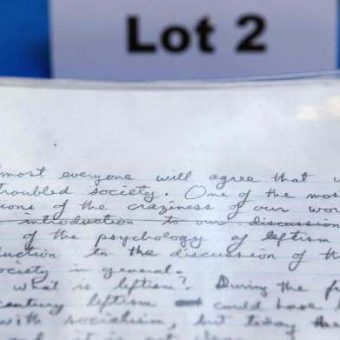 Lot 2
most everyone will agree that
troubled society. One of the mos
ions of the craziness of our wor
introduction to our discussion
of the psychology of leftism
duction to the discussion of th
ociety in general.
what is leftism? During the fi
century leftism could have b
with socialism, but today the